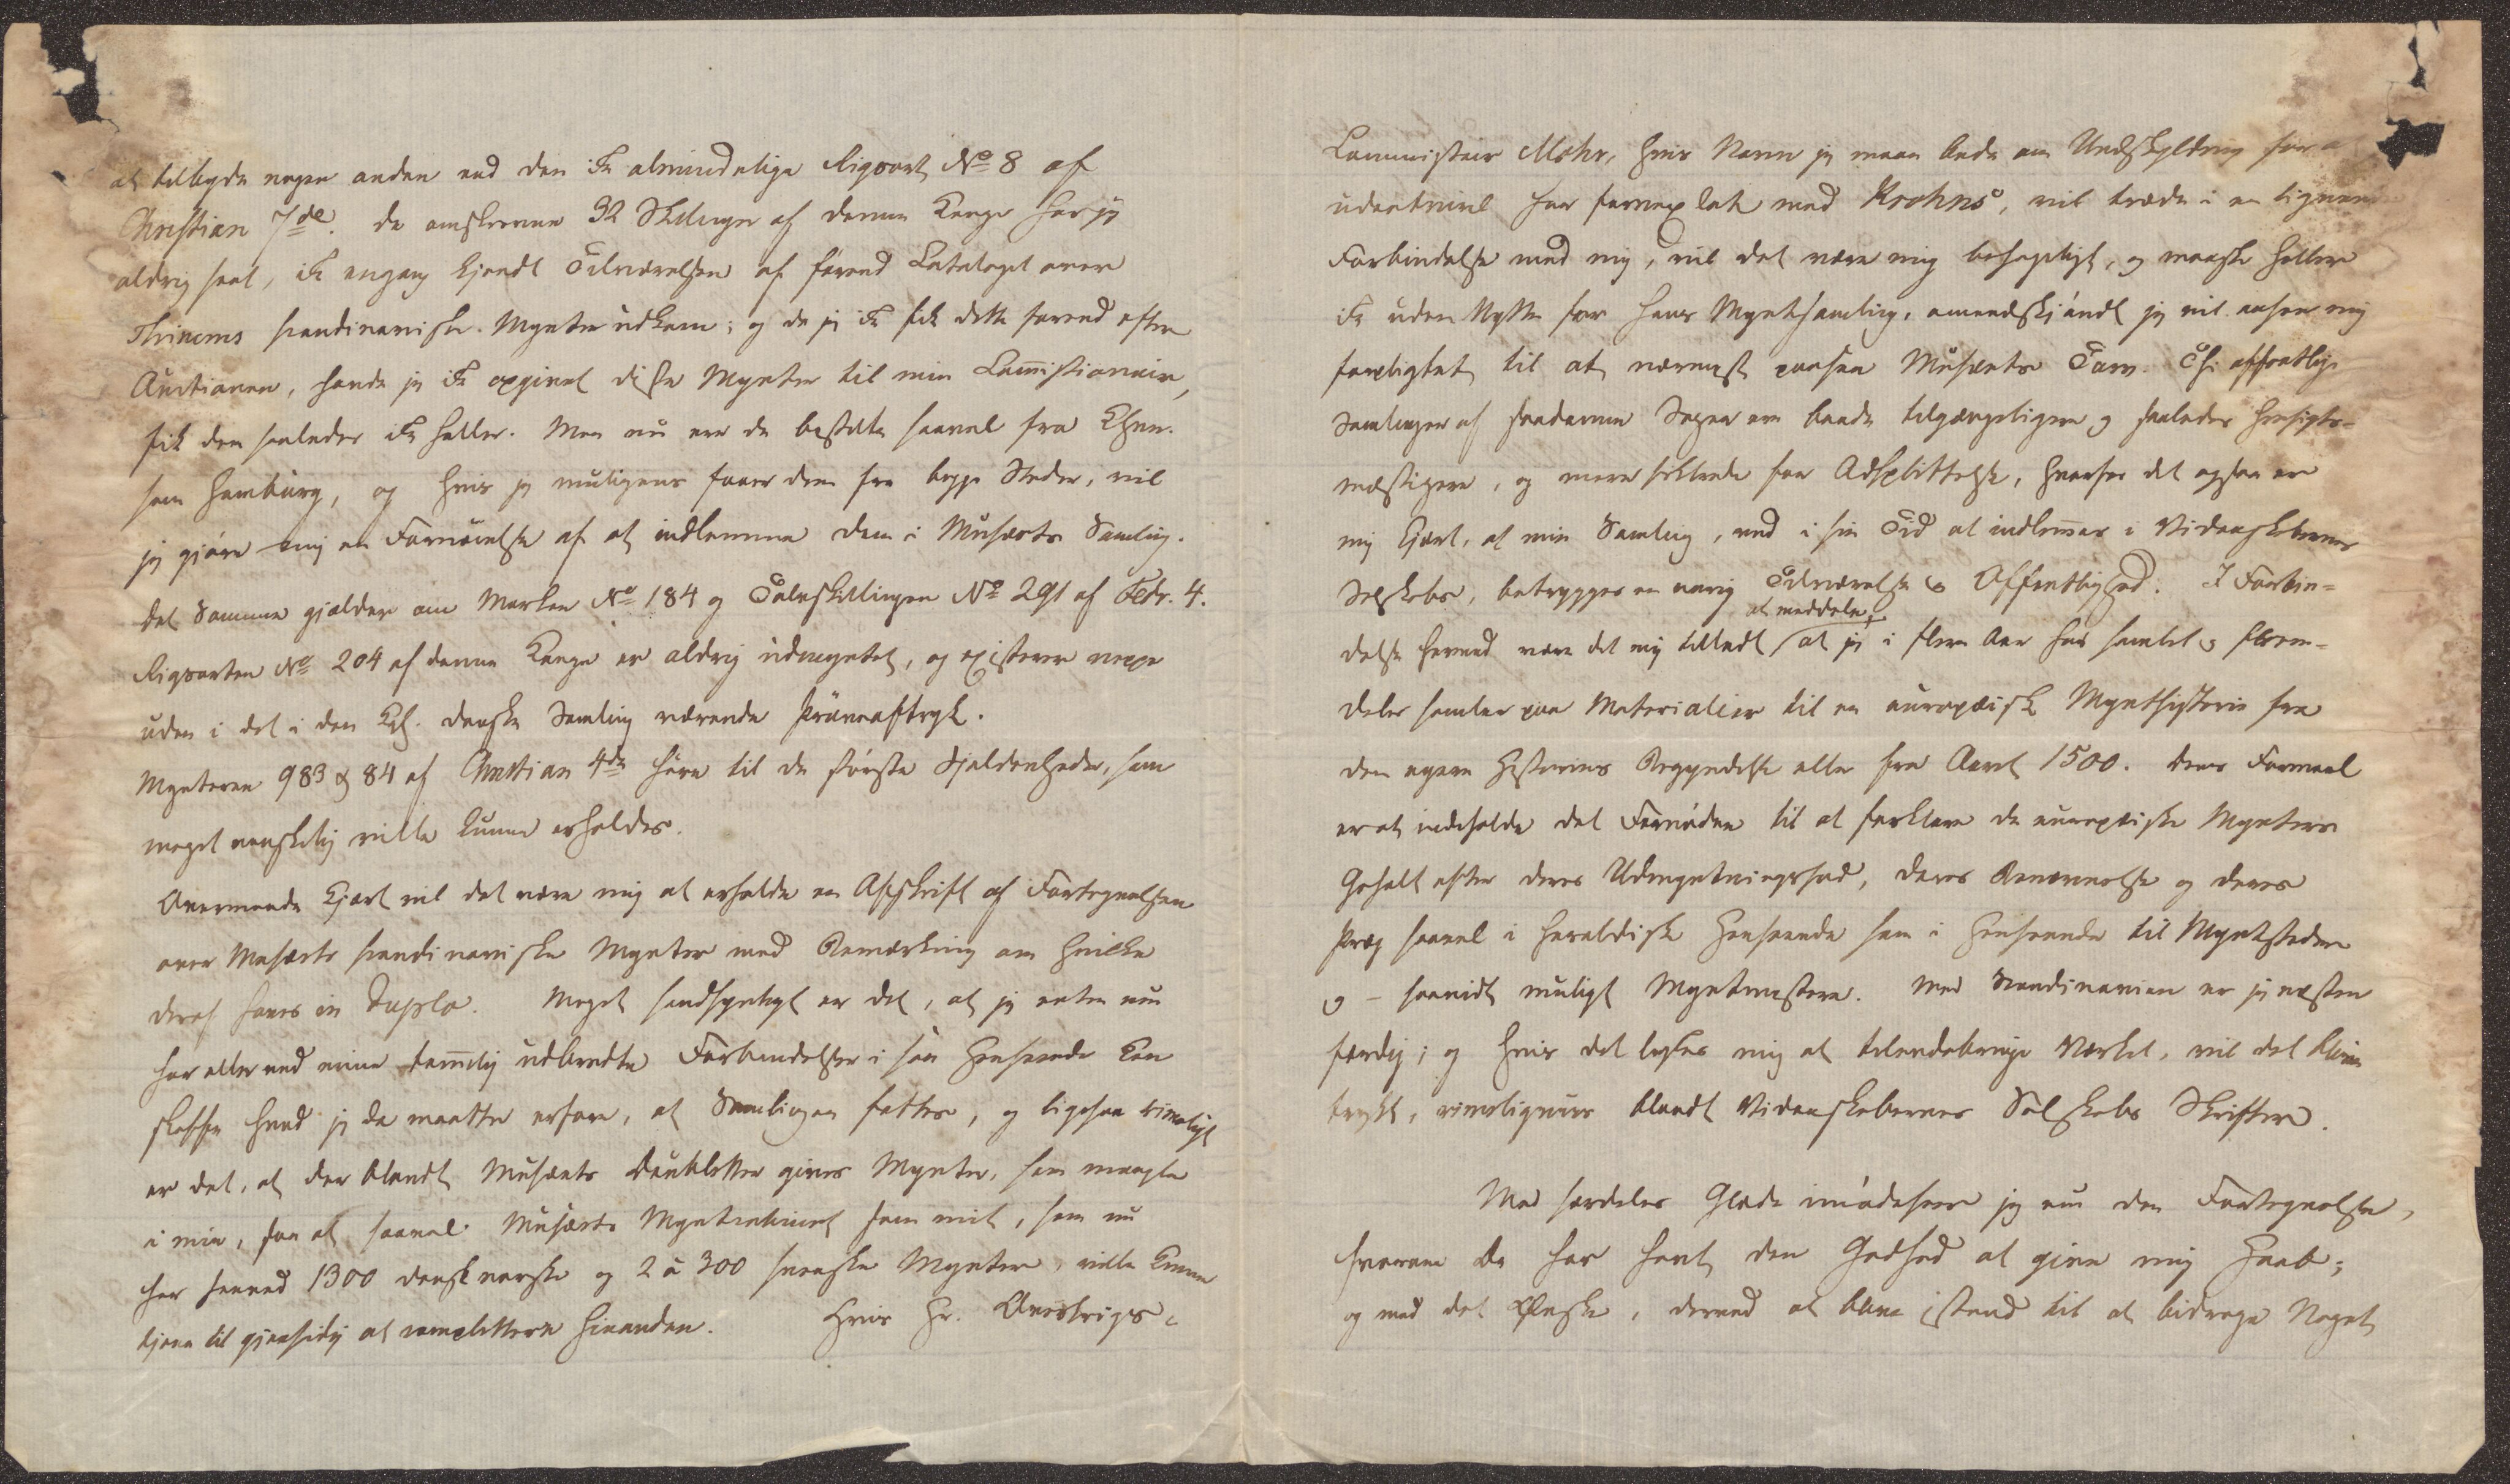 at tilbyde nogen anden end den ikke almindelige Rigsort No 8 af
Christian 7de. De omskrevne 32 Skillinger af denne Konge har jeg
aldrig seet, ikke engang kjendt Tilværelsen af førend Cataloget over
Thinems skandinaviske Mynter udkom; og da jeg ikke fik dette førend efter
Auctionen, havde jeg ikke opgivet disse Mynter til min Commissionair,
fik dem saaledes ikke heller. Men nu ere de bestilte saavel fra Khvn.
som Hamburg, og hvis jeg muligens faaer dem fra begge Steder, vil
jeg gjøre mig en Fornøielse af at indlemme dem i Musæets Samling.
Det Samme gjælder om Marken No 184 og Tolvskillingen No 291 af Fedr. 4.
Rigsorten No 204 af denne Konge er aldrig udmyntet, og existerer neppe
uden i det i den Kgl. danske Samling værende Prøveaftryk.
Mynterne 983 & 84 af Christian 4de høre til de største Sjeldenheder, som
meget vanskelig ville kunne erholdes.
Overmaade kjært vil det være mig at erholde en Afskrift af Fortegnelsen
over Musæets skandinaviske Mynter med Bemærkning om hvilke
deraf haves in Duplo. Meget sandsynligt er det, at jeg enten nu
har eller ved mine temmelig udbredte Forbindelser i saa Henseende kan
skaffe hvad jeg da maatte erfare, at Samlingen fattes, og ligesaa rimeligt
er det, at der blandt Musæets Doubletter gives Mynter, som mangle
i min, saa at saavel Musæets Myntcabinet som mit, som nu
har henved 1300 dansknorske og 2 à 300 svenske Mynter, ville kunne
tjene til gjensidig at complettere hinanden. Hvis Hr. Overkrigs-
Commissair Mohr, hvis Navn jeg maa bede om Undskyldning for at
udentvivl har forvexlet med Krohns, vil træde i en lignende
Forbindelse med mig, vil det være mig behageligt, og maaske heller
ikke uden Nytte for hans Myntsamling, omendskjøndt jeg vil ansee mig
forpligtet til at nærmest paasee Musæets Tarv. Thi offentlige
Samlinger af saadanne Sager ere baade tilgængeligere og saaledes hensigts-
mæssigere, og mere sikkrede for Adsplittelse, hvorfor det ogsaa er
mig kjært, at min Samling, ved i sin Tid at indlemmes i Videnskabernes
Selskabs, betrygges en varig Tilværelse og Offentlighed. I Forbin-
at meddele,
delse hermed være det mig tilladt at jeg i flere Aar har samlet og frem-
deles samler paa Materialier til en europæisk Mynthistorie fra
den nyere Histories Begyndelse eller fra Aaret 1500. Dens Formaal
er at indeholde det Fornødne til at forklare de europæiske Mynters
Gehalt efter deres Udmyntningsfod, deres Benævnelse og deres
Præg saavel i heraldisk Henseende som i Henseende til Myntstedere
og - saavidt muligt Myntmestere. Med Skandinavien er jeg næsten
færdig; og hvis det lykkes mig at tilendebringe Værket, vil det blive
trykt, rimeligviis blandt Videnskabernes Selskabs Skrifter.
Med særdeles Glæde imødeseer jeg nu den Fortegnelse,
hvorom De har havt den Godhed at give mig Haab;
og med det Ønske, derved at blive istand til at bidrage Noget